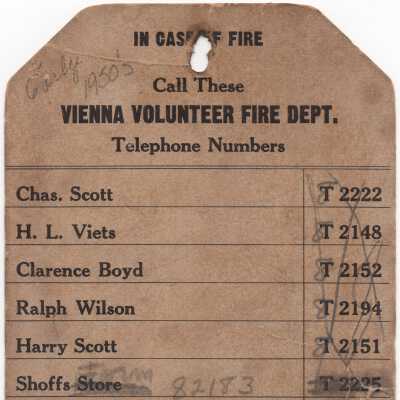 IN CASE OF FIRE
Early 1950's
Call These
VIENNA VOLUNTEER FIRE DEPT.
Telephone Numbers
Chas. Scott T 2222
H. L. Viets T 2148
Clarence Boyd T 2152
Ralph Wilson T 2194
Harry Scott T 2151
Shoffs Store 82183 T 2225